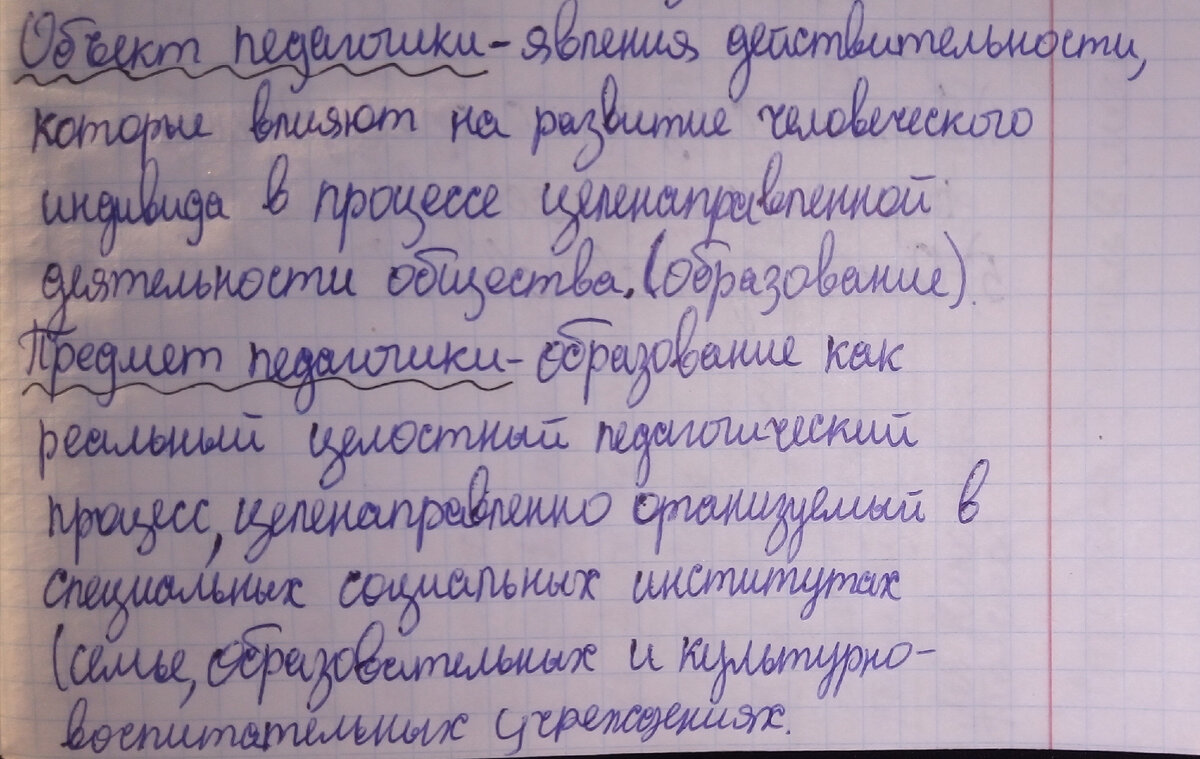 Объект педагогики - явления действительности,
которые влияют на развитие человеческого
индивида в процессе целенаправленной
деятельности общества. (образование).
Предмет педагогики - образование как
реальный целостный педагогический
процесс, целенаправленно организуемый в
специальных социальных институтах
(семье, образовательных и культурно-
воспитательных учреждениях.